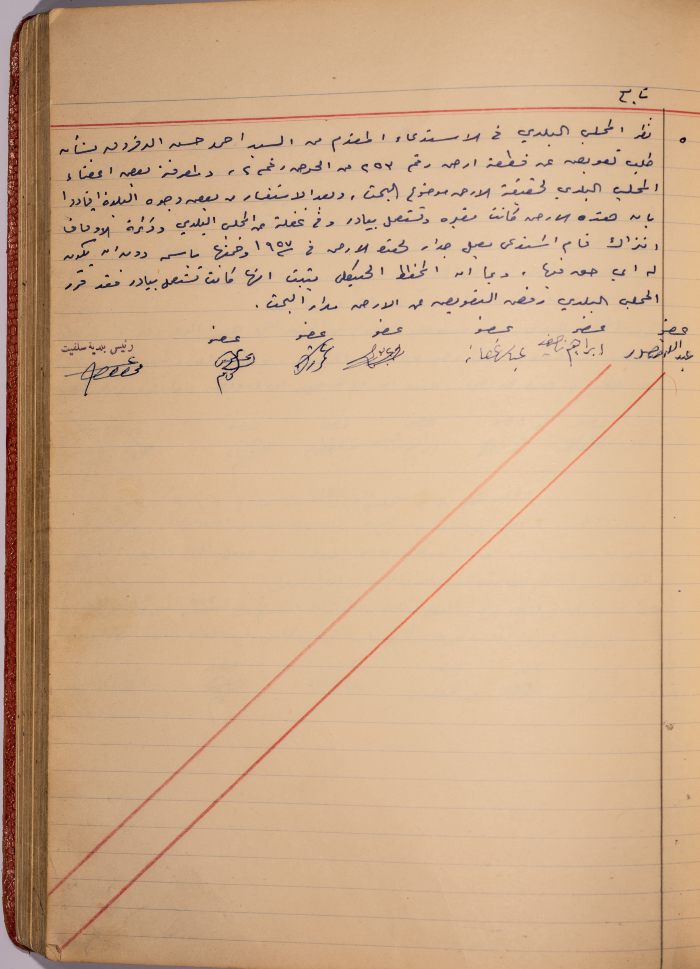 تابع
٥ نظر المجلس البلدي في الاستدعاء المقدم من السيد احمد حسن الدقروق بشأن
طلب تعويض عن قطعة ارض رقم ٢٥٣ من الحوض رقم ٢، ولمعرفة بعض اعضاء
المجلس البلدي لحقيقة الارض موضوع البحث، وبعد الاستفسار من بعض وجوه البلدة افادوا
بان هذه الارض كانت مقبره وتستعمل بيادر وفي غفلة من المجلس البلدي ودائرة الاوقاف
انذاك قام المستدعي بعمل جدار لهذه الارض في ١٩٥٧ وضمنها باسمه دون ان يكون
له اي حق فيها، وبما ان المخطط الهيكلي يثبت انها كانت تستعمل بيادر فقد قرر
المجلس البلدي رفض التعويض عن الارض مدار البحث.
عضو عضو عضو عضو عضو عضو
ابراهيم عباس
رئيس بلدية سلفيت